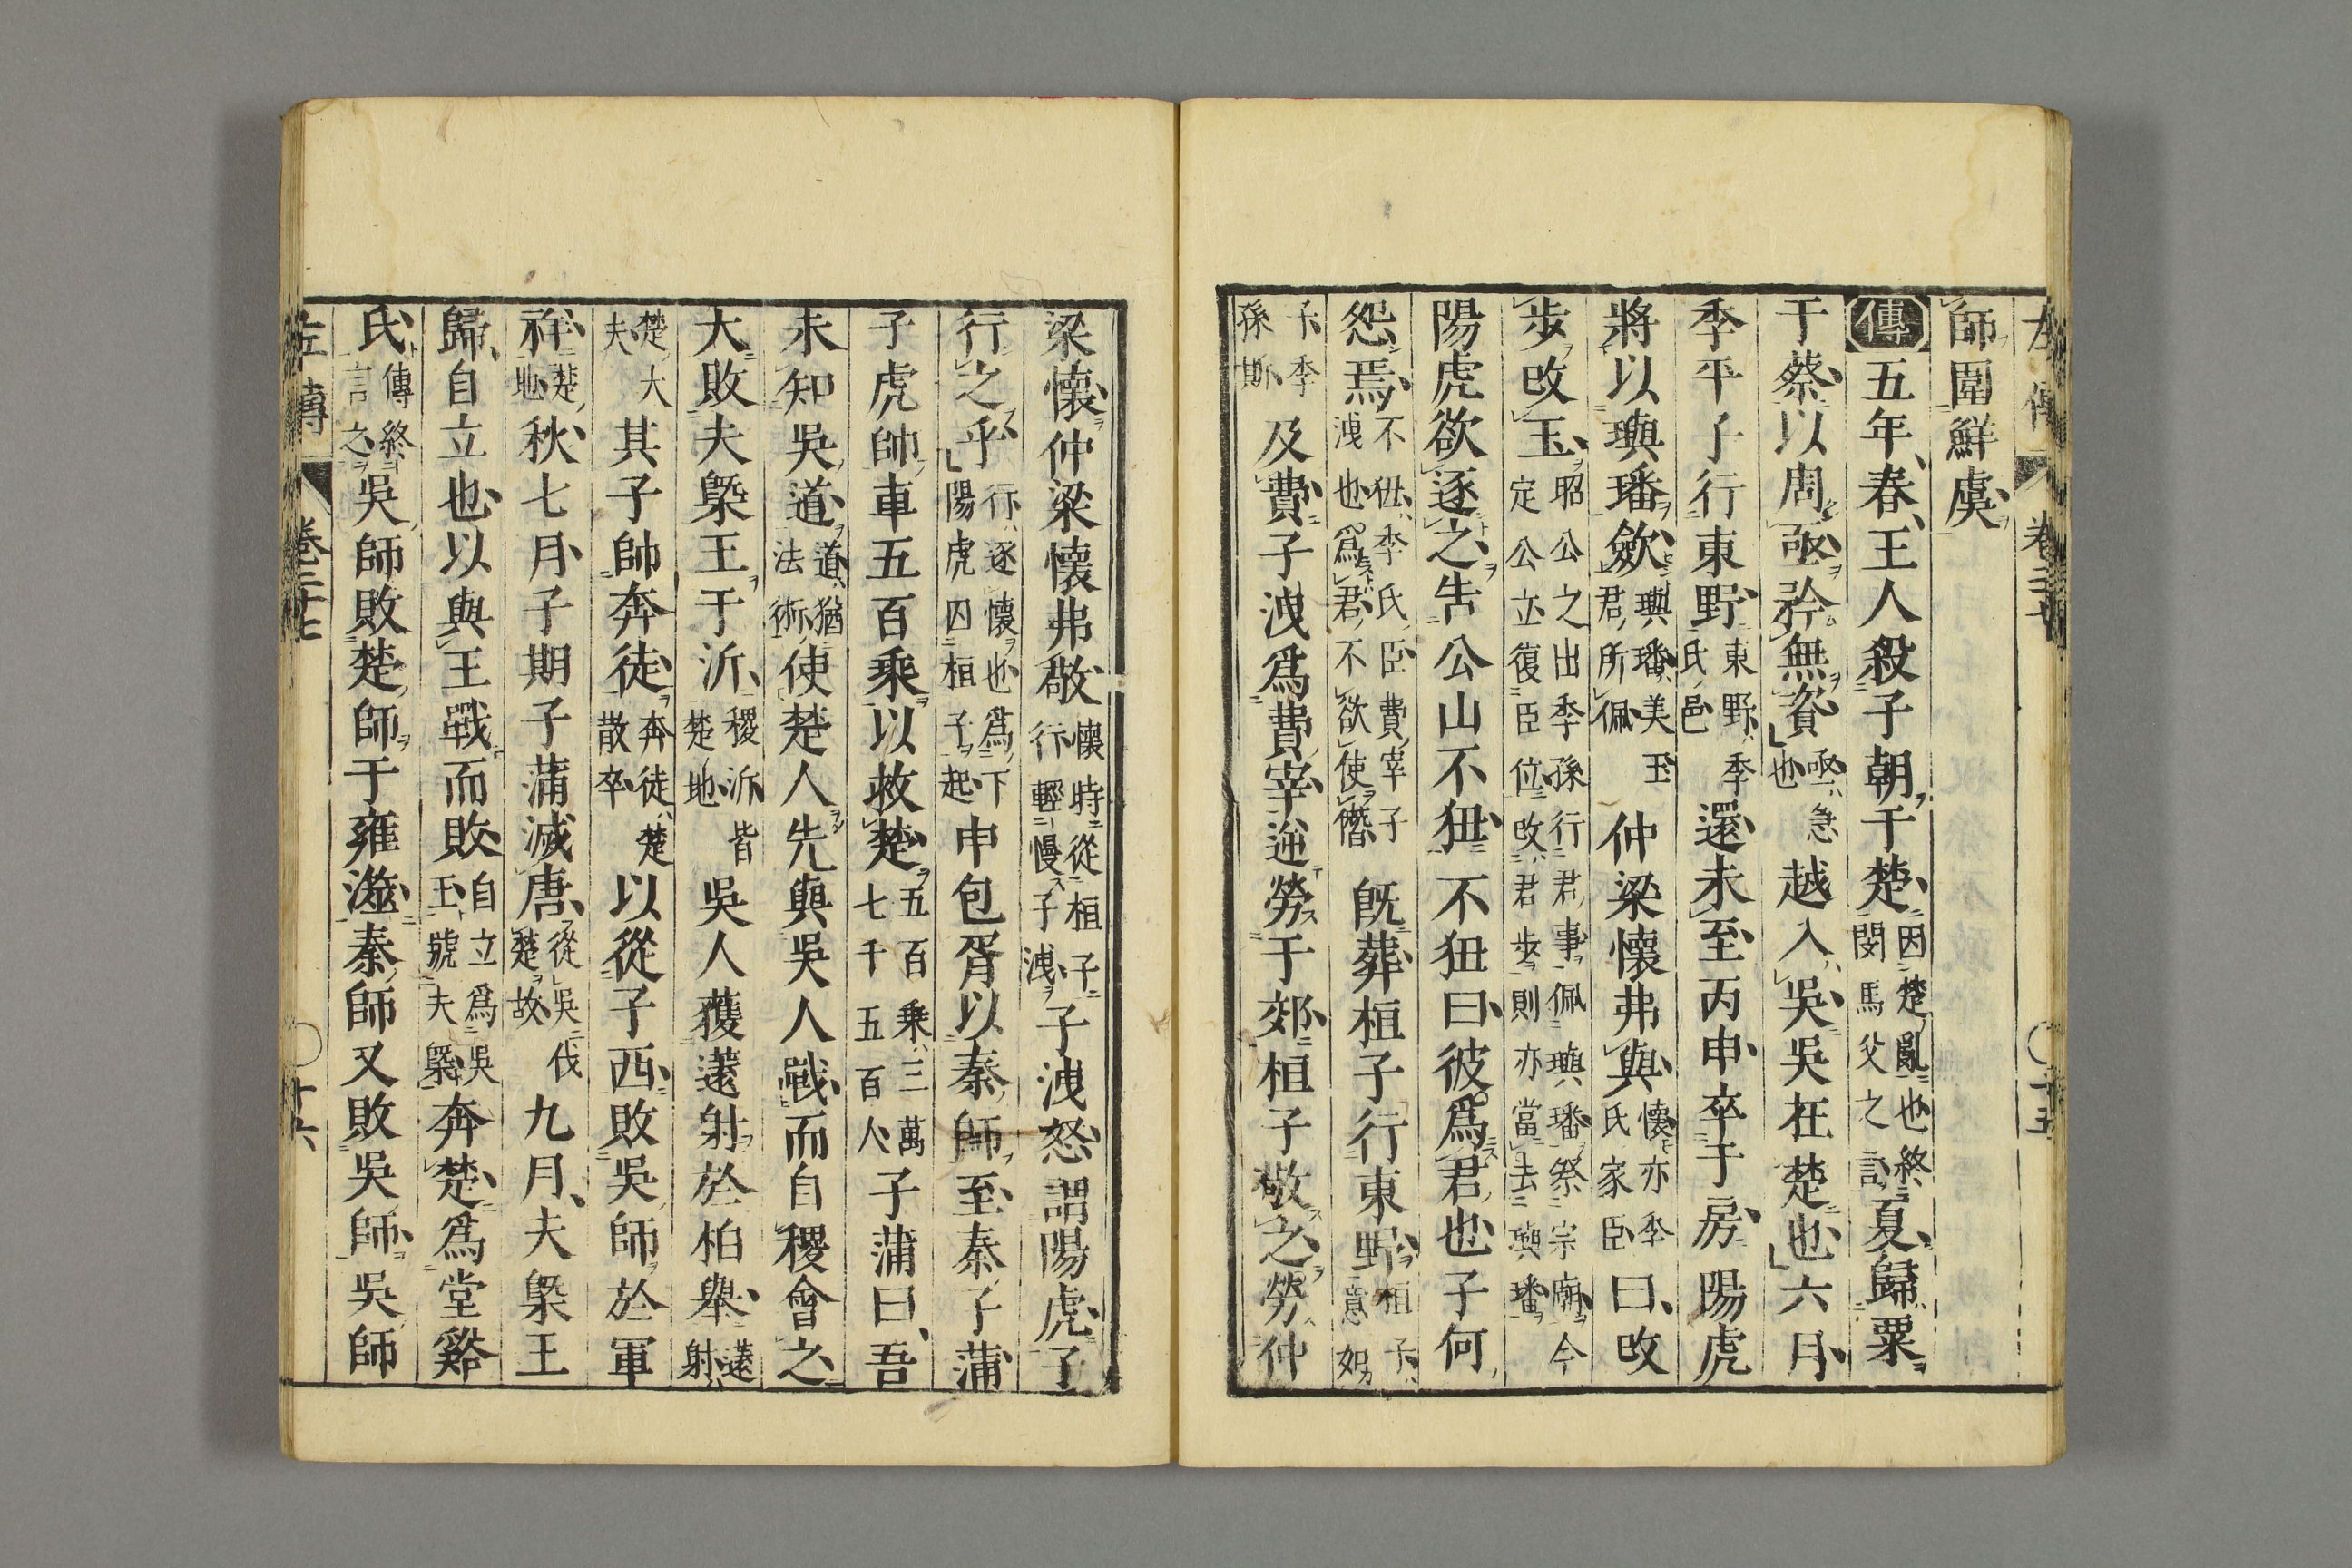 左傳 卷二十七 十五
師圍鮮虞
傳五年春王人殺子朝于楚因楚亂也終閔馬父之言夏歸粟
于蔡以周亟矜無資亟急也越入吳吳在楚也六月
季平子行東野東野季氏邑還未至丙申卒于房陽虎
將以璵璠斂璵璠美玉君所佩仲梁懷弗與懷亦季氏家臣曰改
步改玉昭公之出季孫行君事佩璵璠祭宗廟今定公立復臣位改君步則亦當去璵璠
陽虎欲逐之告公山不狃不狃曰彼爲君也子何
怨焉不狃季氏臣費宰子洩也爲君不欲使僭既葬桓子行東野桓子意如
子季孫斯及費子洩爲費宰逆勞于郊桓子敬之勞仲
梁懷仲梁懷弗敬懷時從桓子行輕慢子洩子洩怒謂陽虎子
行之乎行逐懷也爲下陽虎囚桓子起申包胥以秦師至秦子蒲
子虎帥車五百乘以救楚五百乘三萬七千五百人子蒲曰吾
未知吳道道猶法術使楚人先與吳人戰而自稷會之
大敗夫槩王于沂稷沂皆楚地吳人獲薳射於柏舉薳射
楚大夫其子帥奔徒奔徒楚散卒以從子西敗吳師於軍
祥楚地秋七月子期子蒲滅唐從吳伐楚故九月夫槩王
歸自立也以與王戰而敗自立爲吳王號夫槩奔楚爲堂谿
氏傳終言之吳師敗楚師于雍澨秦師又敗吳師吳師
左傳 卷二十七 十六